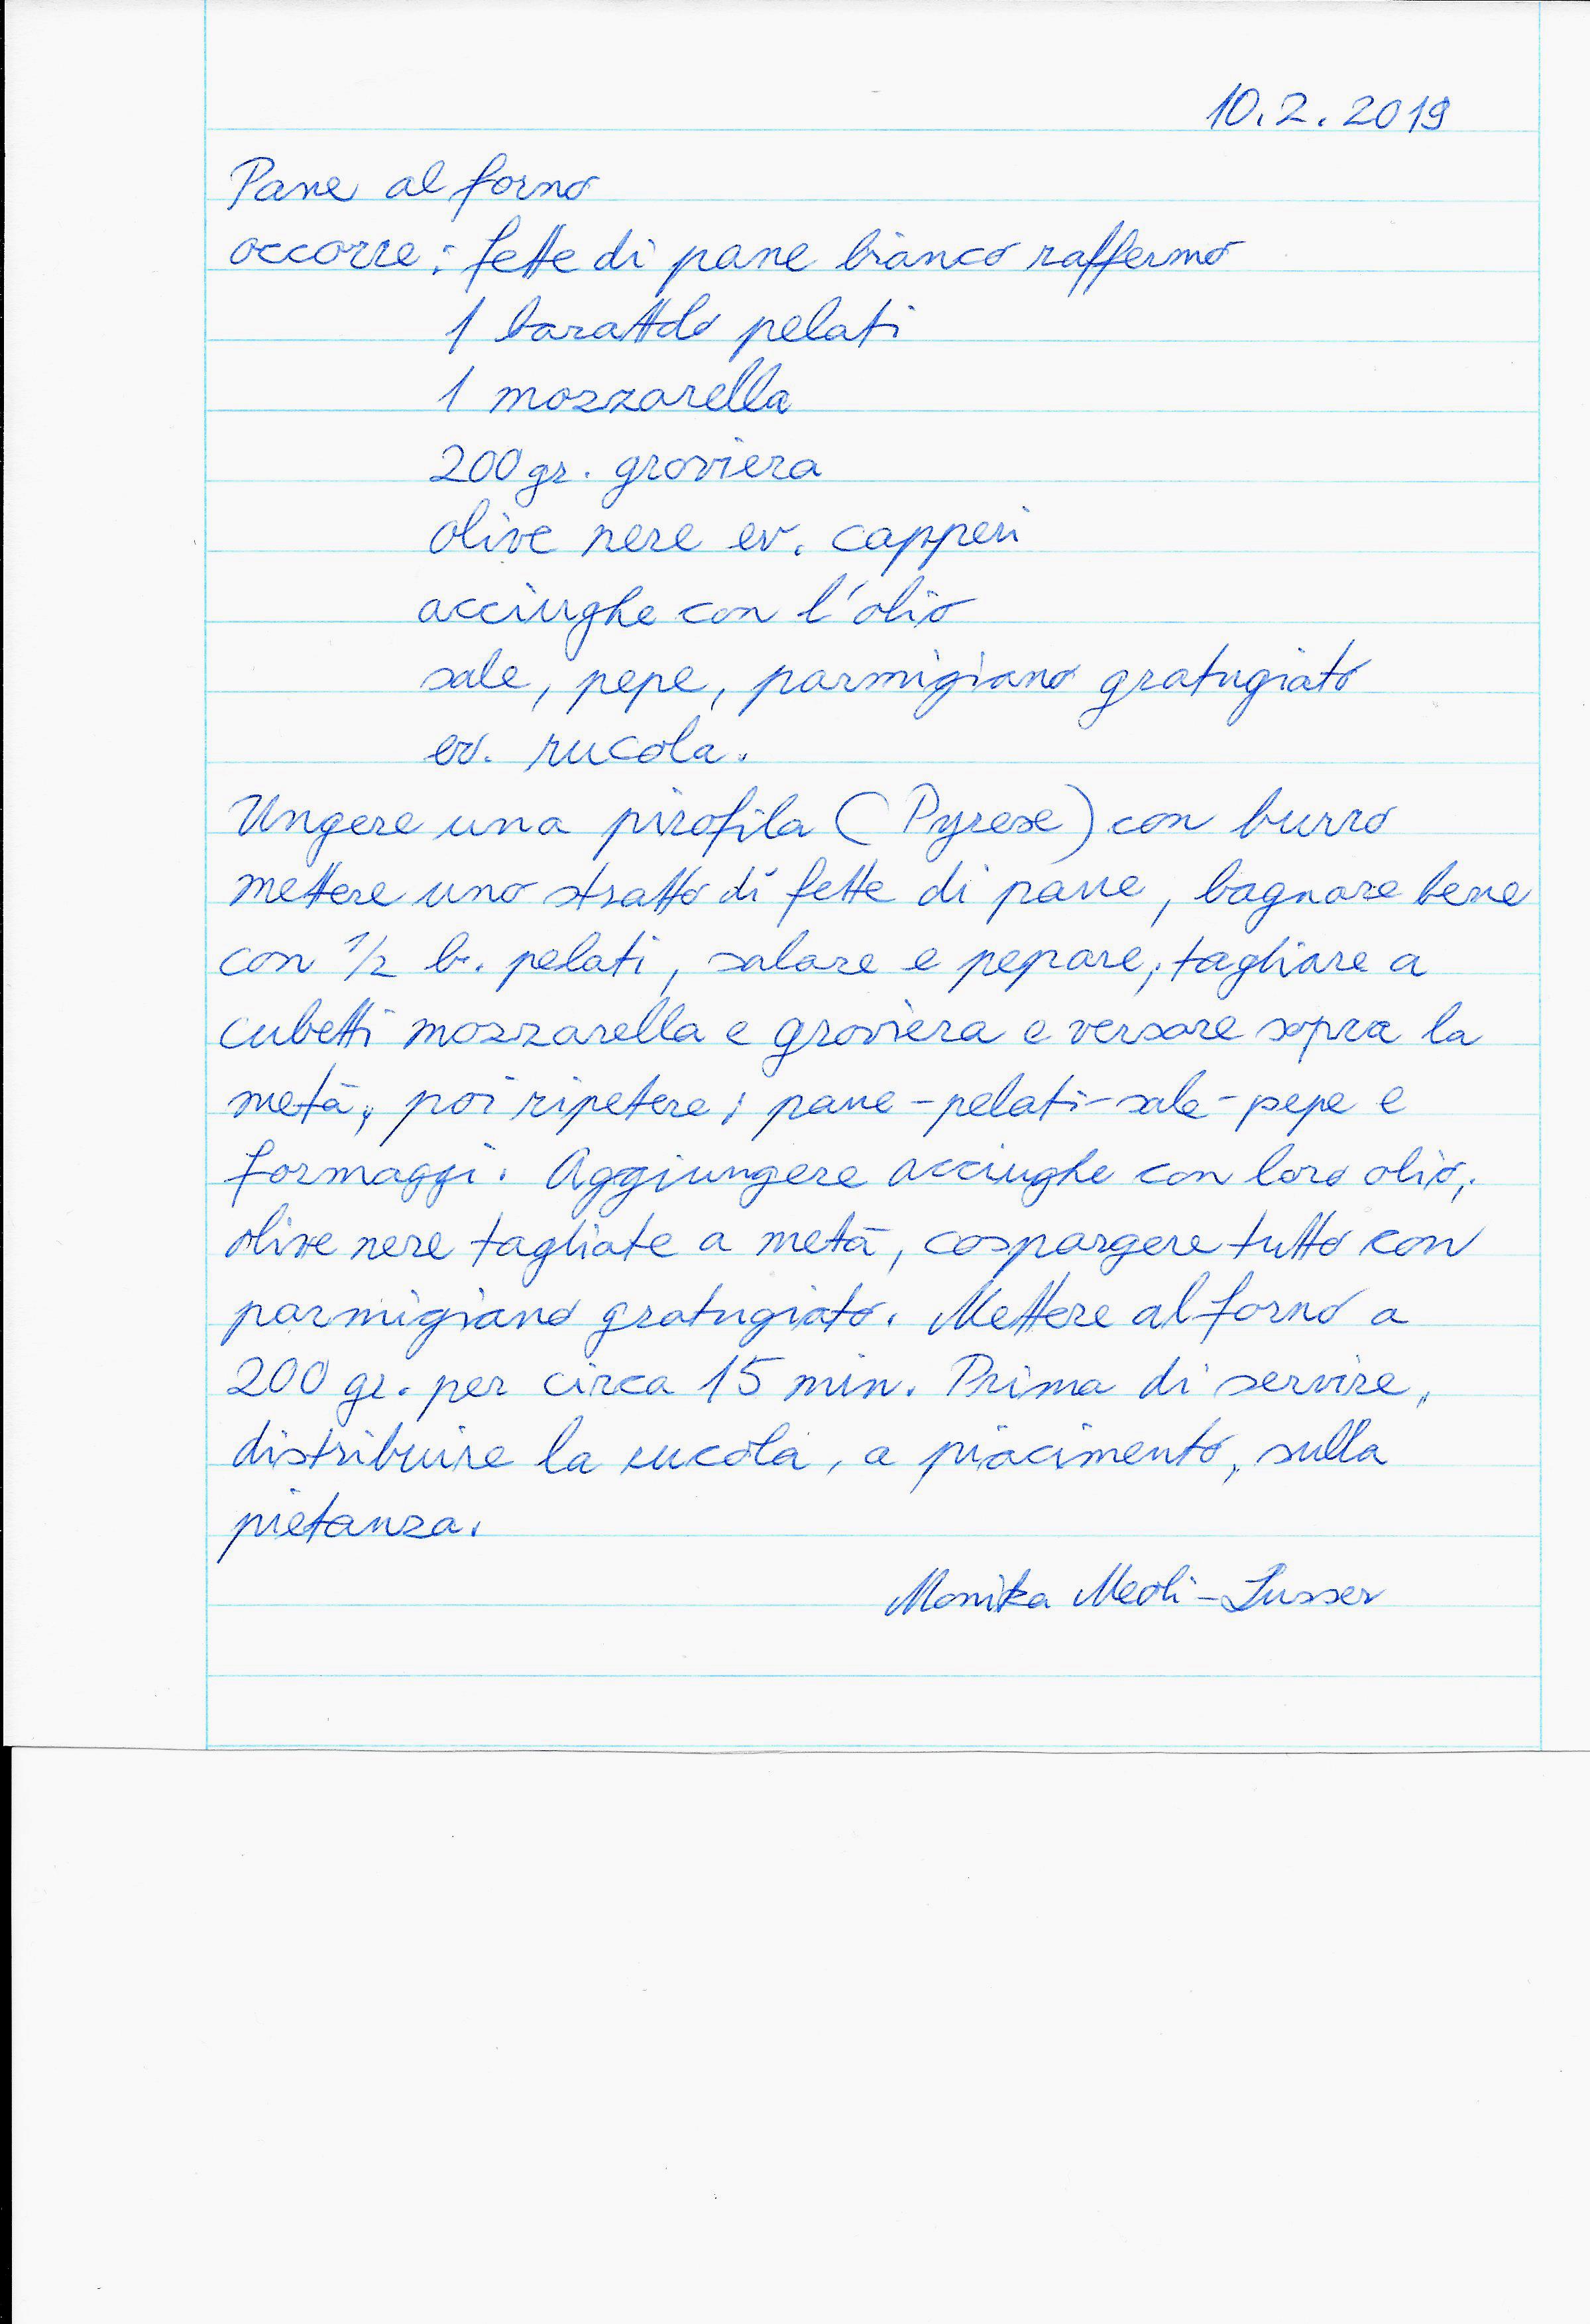 10.2.2019
Pane al forno
occorre: fette di pane bianco raffermo
1 barattolo pelati
1 mozzarella
200 gr. groviera
olive nere ev. capperi
acciughe con l'olio
sale, pepe, parmigiano gratugiato
ev. rucola.
Ungere una pirofila (Pyrex) con burro
mettere uno stratto di fette di pane, bagnare bene
con 1/2 b. pelati, salare e pepare, tagliare a
cubetti mozzarella e groviera e versare sopra la
metà, poi ripetere; pane-pelati-sale-pepe e
formaggi. Aggiungere acciughe con loro olio,
olive nere tagliate a metà, cospargere tutto con
parmigiano gratugiato. Mettere al forno a
200 gr. per circa 15 min. Prima di servire,
distribuire la rucola, a piacimento, sulla
pietanza.
Monika Meoli-Lusser